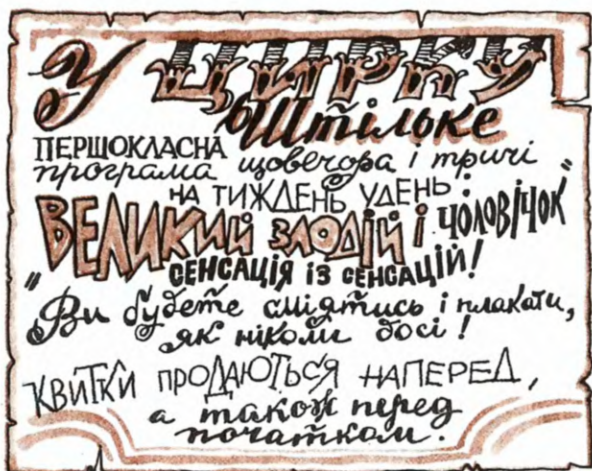 У ЦИРКУ
Штільке
ПЕРШОКЛАСНА
програма щовечора і тричі
НА ТИЖДЕНЬ УДЕНЬ:
ВЕЛИКИЙ ЗЛОДІЙ І ЧОЛОВІЧОК"
СЕНСАЦІЯ ІЗ СЕНСАЦІЙ!
"Ви будете сміятись і плакати,
як ніколи досі!
КВИТКИ ПРОДАЮТЬСЯ НАПЕРЕД,
а також перед
початком.